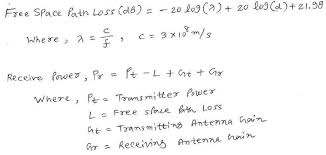 Free Space Path Loss (dB) = - 20 log(λ) + 20 log(d) + 21.98
Where, λ = c/f , c = 3 × 10⁸ m/s
Receive Power, Pr = Pt - L + Gt + Gr
Where, Pt = Transmitter Power
L = Free space Path Loss
Gt = Transmitting Antenna Gain
Gr = Receiving Antenna Gain